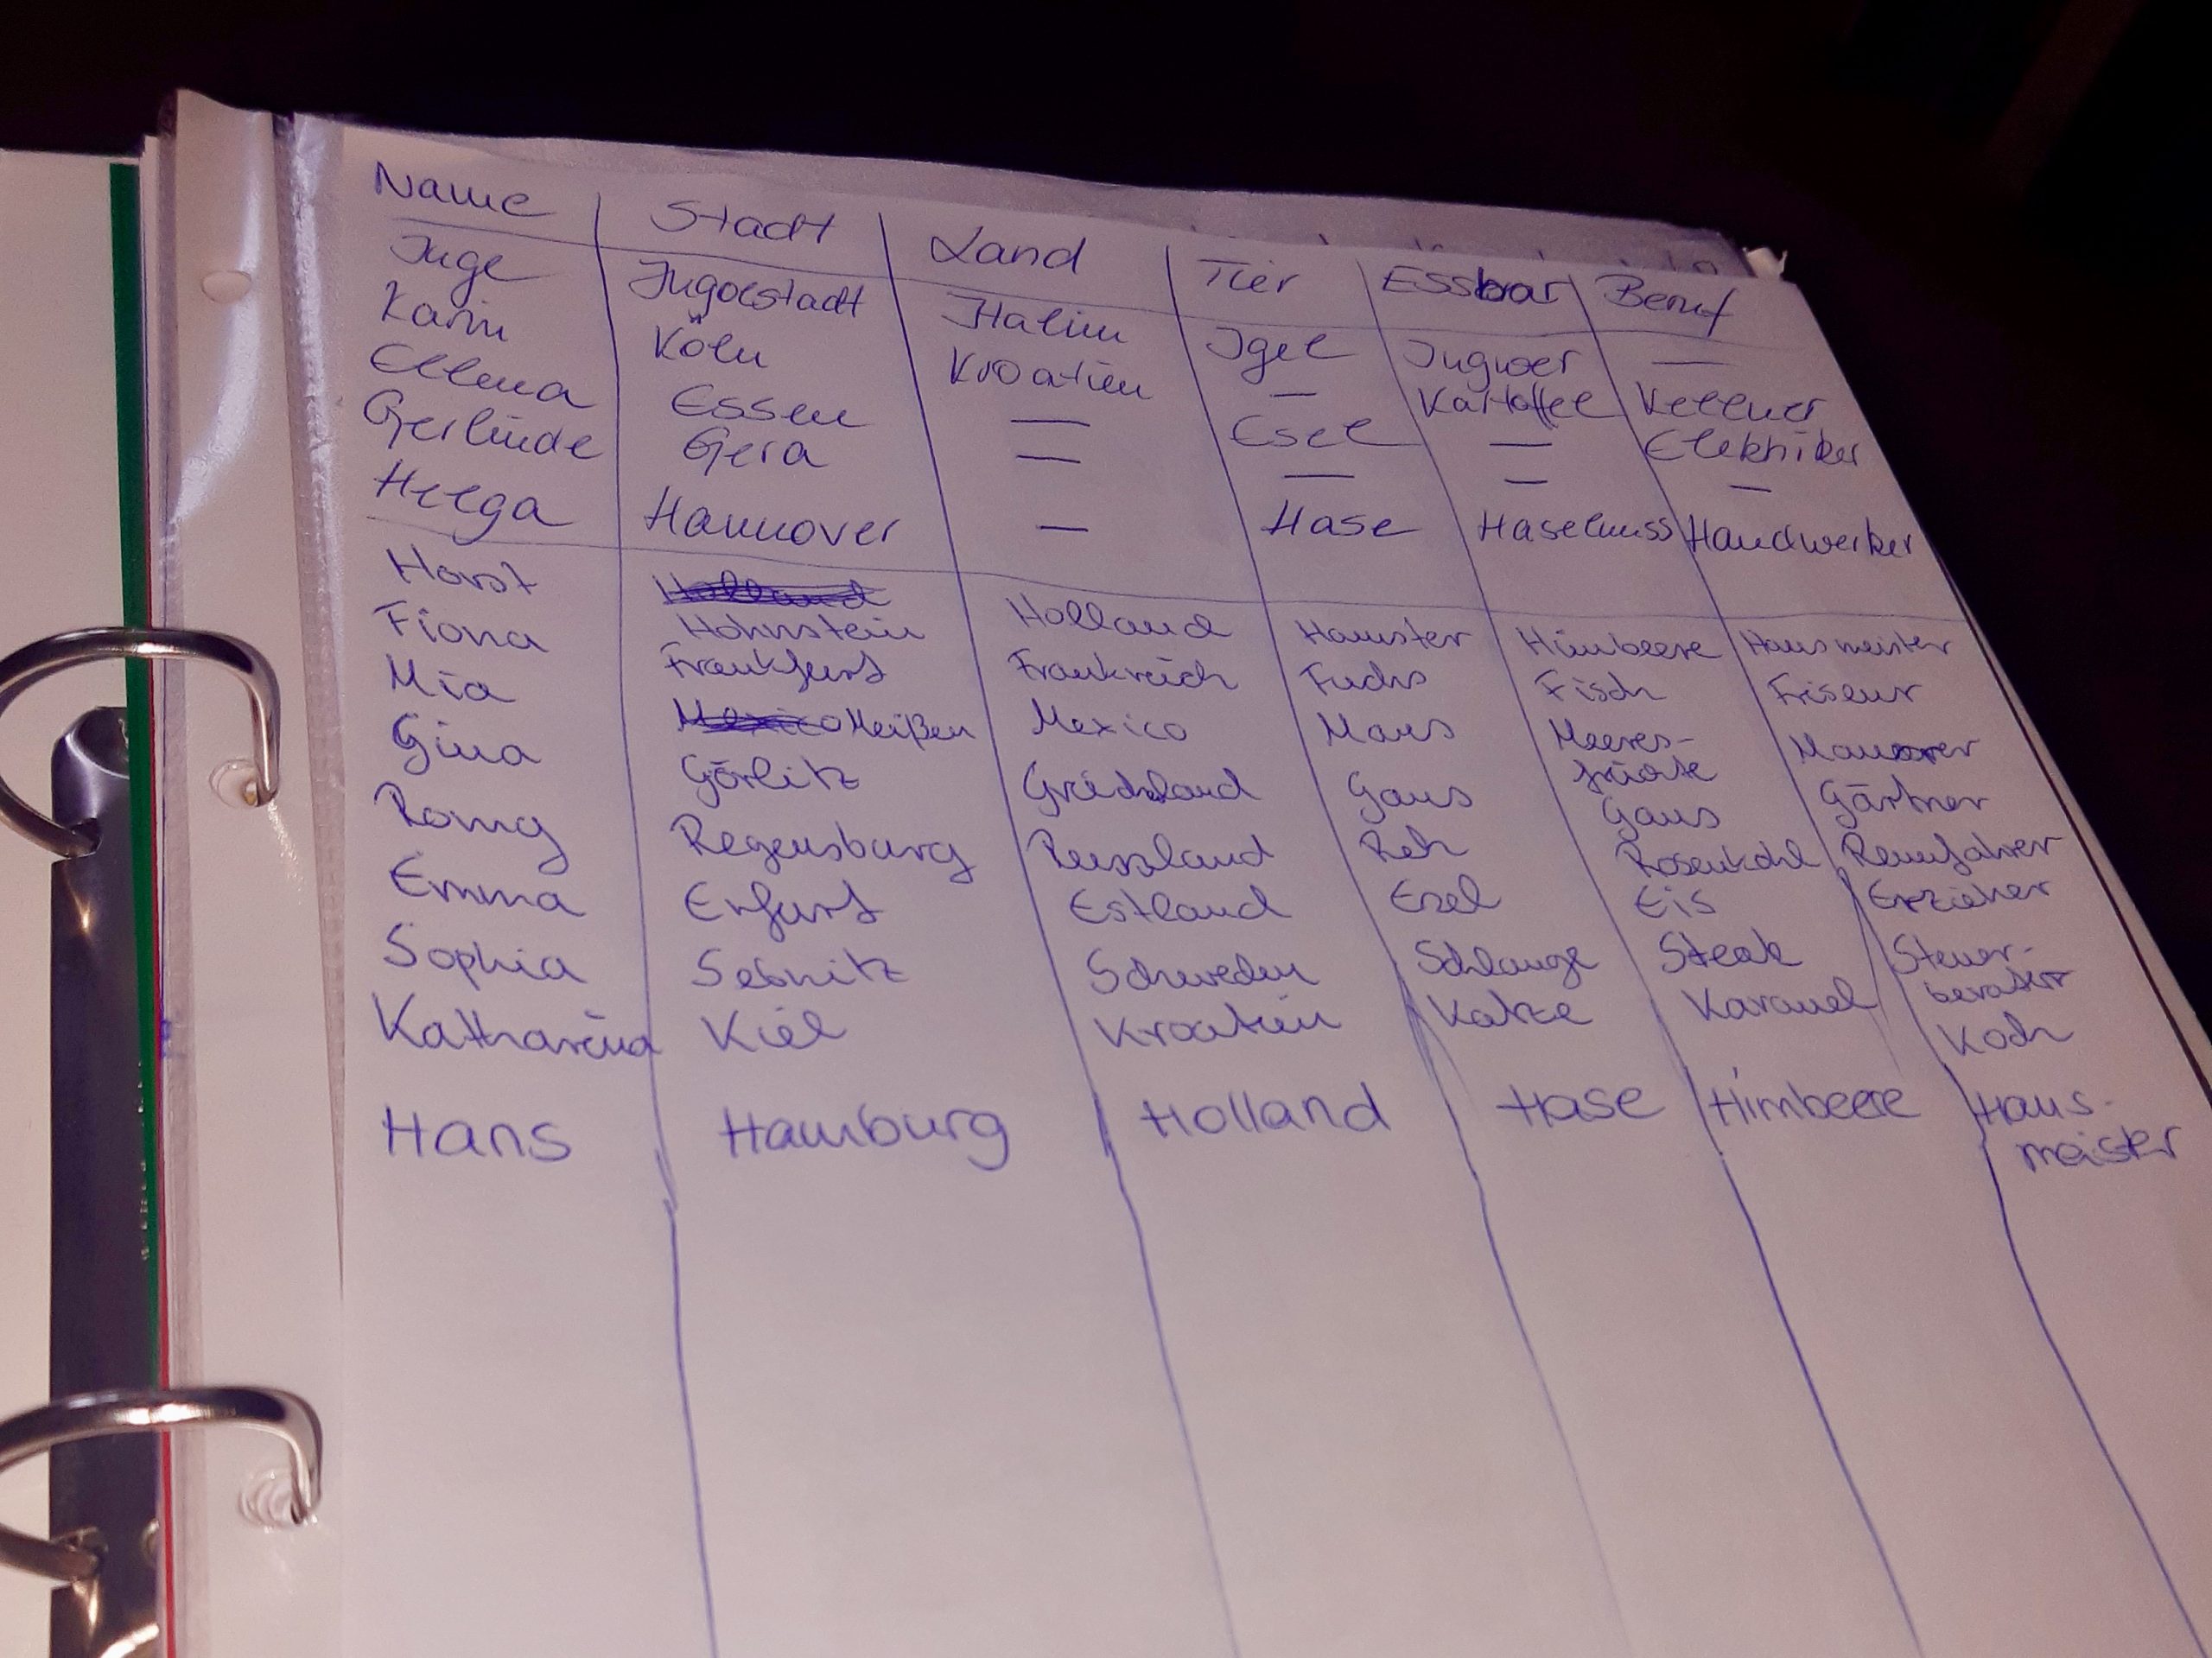 Name Stadt Land Tier Essbar Beruf
Inge Ingolstadt Italien Igel Ingwer —
Karin Köln Kroatien — Kartoffel Kellner
Ellena Essen — Esel — Elektriker
Gerlinde Gera — — — —
Helga Hannover — Hase Haselnuss Handwerker
Horst Holland Hohnstein Holland Hamster Himbeere Hausmeister
Fiona Frankfurt Frankreich Fuchs Fisch Friseur
Mia Mexico Meißen Mexico Maus Meeres-
früchte Maurer
Gina Görlitz Griechland Gans Gans Gärtner
Romy Regensburg Russland Reh Rosenkohl Rennfahrer
Emma Erfurt Estland Esel Eis Erzieher
Sophia Sebnitz Schweden Schlange Steak Steuer-
berater
Katharina Kiel Kroatien Katze Karamel Koch
Hans Hamburg Holland Hase Himbeere Haus-
meister